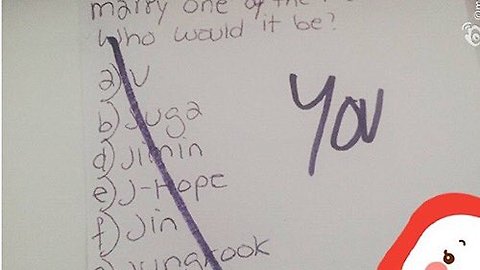 marry one of the
Who would it be?
a) V
b) Suga
d) Jimin
e) J-Hope
f) Jin
Jungkook
YOU